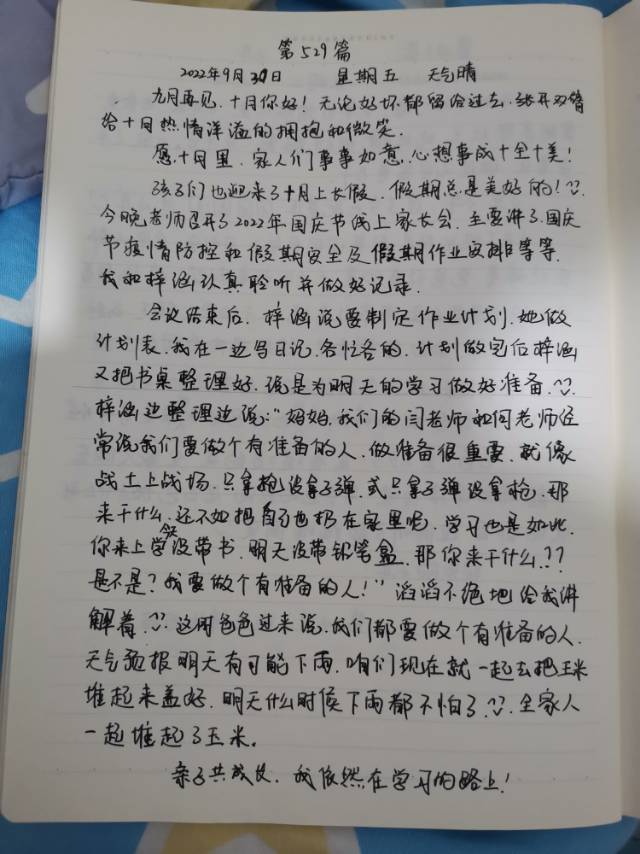 第529篇
2022年9月30日 星期五 天气晴
九月再见,十月你好!无论好坏都留给过去,张开双臂
给十月热情洋溢的拥抱和微笑.
愿十月里,家人们事事如意,心想事成十全十美!
孩子们也迎来了十月上长假,假期总是美好的!
今晚老师召开了2022年国庆节线上家长会,主要讲了国庆
节疫情防控和假期安全及假期作业安排等等,
我和梓涵认真聆听并做好记录.
会议结束后,梓涵说要制定作业计划,她做
计划表,我在一边写日记,各忙各的,计划做完后梓涵
又把书桌整理好,说是为明天的学习做好准备.
梓涵边整理边说:"妈妈,我们的闫老师和何老师经
常说我们要做个有准备的人,做准备很重要,就像
战士上战场,只拿抢没拿子弹,或只拿子弹没拿枪,那
来干什么,还不如把自己也扔在家里呢,学习也是如此,
你来上学今天没带书,明天没带铅笔盒,那你来干什么??
是不是?我要做个有准备的人!"滔滔不绝地给我讲
解着.这时爸爸过来说,我们都要做个有准备的人,
天气预报明天有可能下雨,咱们现在就一起去把玉米
堆起来盖好,明天什么时候下雨都不怕了.全家人
一起堆起了玉米.
亲子共成长,我依然在学习的路上!